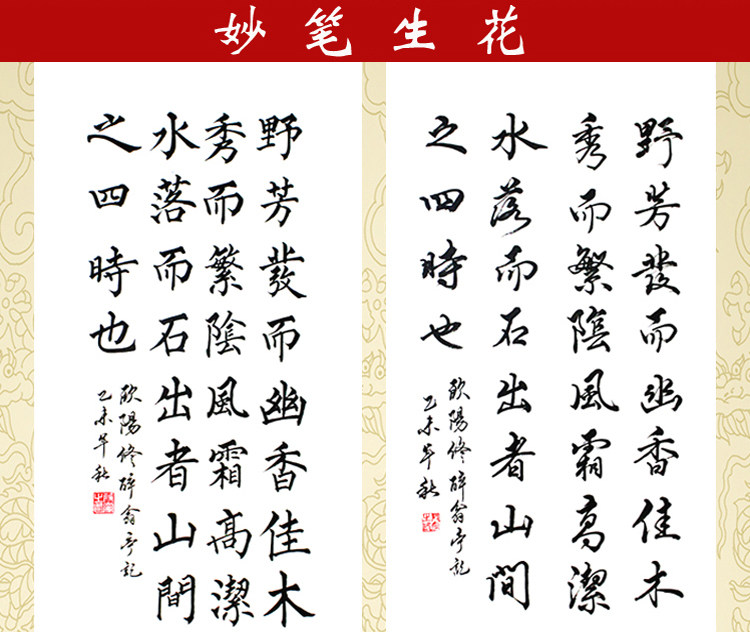 妙笔生花
野芳發而幽香佳木
秀而繁陰風霜高潔
水落而石出者山間
之四時也
欧陽修醉翁亭記
乙未年秋
野芳發而幽香佳木
秀而繁陰風霜高潔
水落而石出者山間
之四時也
欧陽修醉翁亭記
乙未年秋